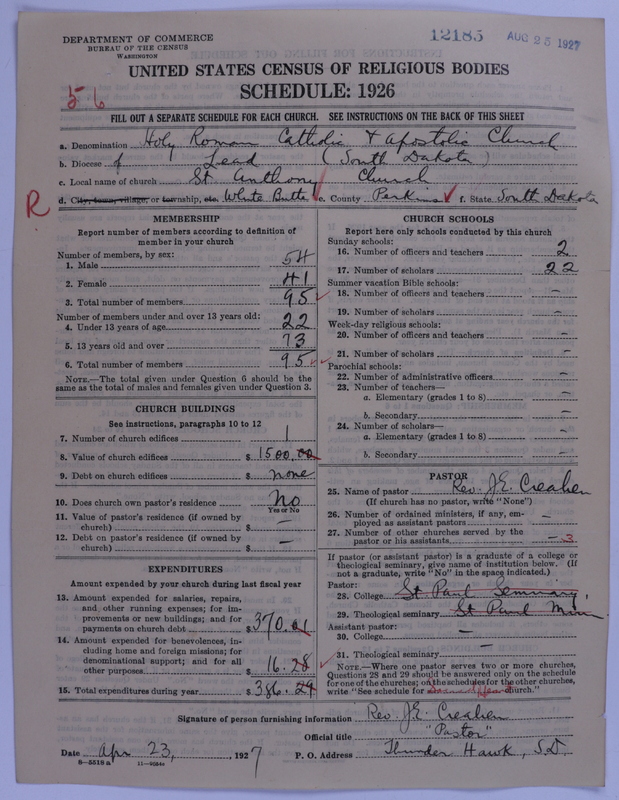 DEPARTMENT OF COMMERCE
BUREAU OF THE CENSUS
WASHINGTON
12185 AUG 25 1927
UNITED STATES CENSUS OF RELIGIOUS BODIES
SCHEDULE: 1926
56
FILL OUT A SEPARATE SCHEDULE FOR EACH CHURCH. SEE INSTRUCTIONS ON THE BACK OF THIS SHEET
a. Denomination Holy Roman Catholic & Apostolic Church
b. Diocese of Lead (South Dakota)
c. Local name of church St Anthony Church
R
d. City, town, village, or township, etc. White Butte e. County Perkins f. State South Dakota
MEMBERSHIP
Report number of members according to definition of
member in your church
Number of members, by sex:
1. Male 54
2. Female 41
3. Total number of members 95
Number of members under and over 13 years old:
4. Under 13 years of age 22
5. 13 years old and over 73
6. Total number of members 95
NOTE.—The total given under Question 6 should be the
same as the total of males and females given under Question 3.
CHURCH BUILDINGS
See instructions, paragraphs 10 to 12
7. Number of church edifices 1
8. Value of church edifices $ 1500.00
9. Debt on church edifices $ none
10. Does church own pastor's residence no
Yes or No
11. Value of pastor's residence (if owned by
church) $ —
12. Debt on pastor's residence (if owned by
church) $ —
EXPENDITURES
Amount expended by your church during last fiscal year
13. Amount expended for salaries, repairs,
and other running expenses; for im-
provements or new buildings; and for
payments on church debt $ 370.01
14. Amount expended for benevolences, in-
cluding home and foreign missions; for
denominational support; and for all
other purposes $ 16.28
15. Total expenditures during year $ 386.29
CHURCH SCHOOLS
Report here only schools conducted by this church
Sunday schools:
16. Number of officers and teachers 2
17. Number of scholars 22
Summer vacation Bible schools:
18. Number of officers and teachers —
19. Number of scholars —
Week-day religious schools:
20. Number of officers and teachers —
21. Number of scholars —
Parochial schools:
22. Number of administrative officers —
23. Number of teachers—
a. Elementary (grades 1 to 8) —
b. Secondary —
24. Number of scholars—
a. Elementary (grades 1 to 8) —
b. Secondary —
PASTOR
25. Name of pastor Rev. J.E. Creahen
(If church has no pastor, write "None")
26. Number of ordained ministers, if any, em-
ployed as assistant pastors —
27. Number of other churches served by the
pastor or his assistants — 3
If pastor (or assistant pastor) is a graduate of a college or
theological seminary, give name of institution below. (If
not a graduate, write "No" in the space indicated.)
Pastor:
28. College St Paul Seminary,
29. Theological seminary St Paul Minn
Assistant pastor:
30. College —
31. Theological seminary —
NOTE.—Where one pastor serves two or more churches,
Questions 28 and 29 should be answered only on the schedule
for one of the churches; on the schedules for the other churches,
write "See schedule for Sacred Heart church."
Signature of person furnishing information Rev. J.E. Creahen
Official title "Pastor"
Date Apr 23, 1927 P. O. Address Thunder Hawk, S.D.
8—5518a 11—9084